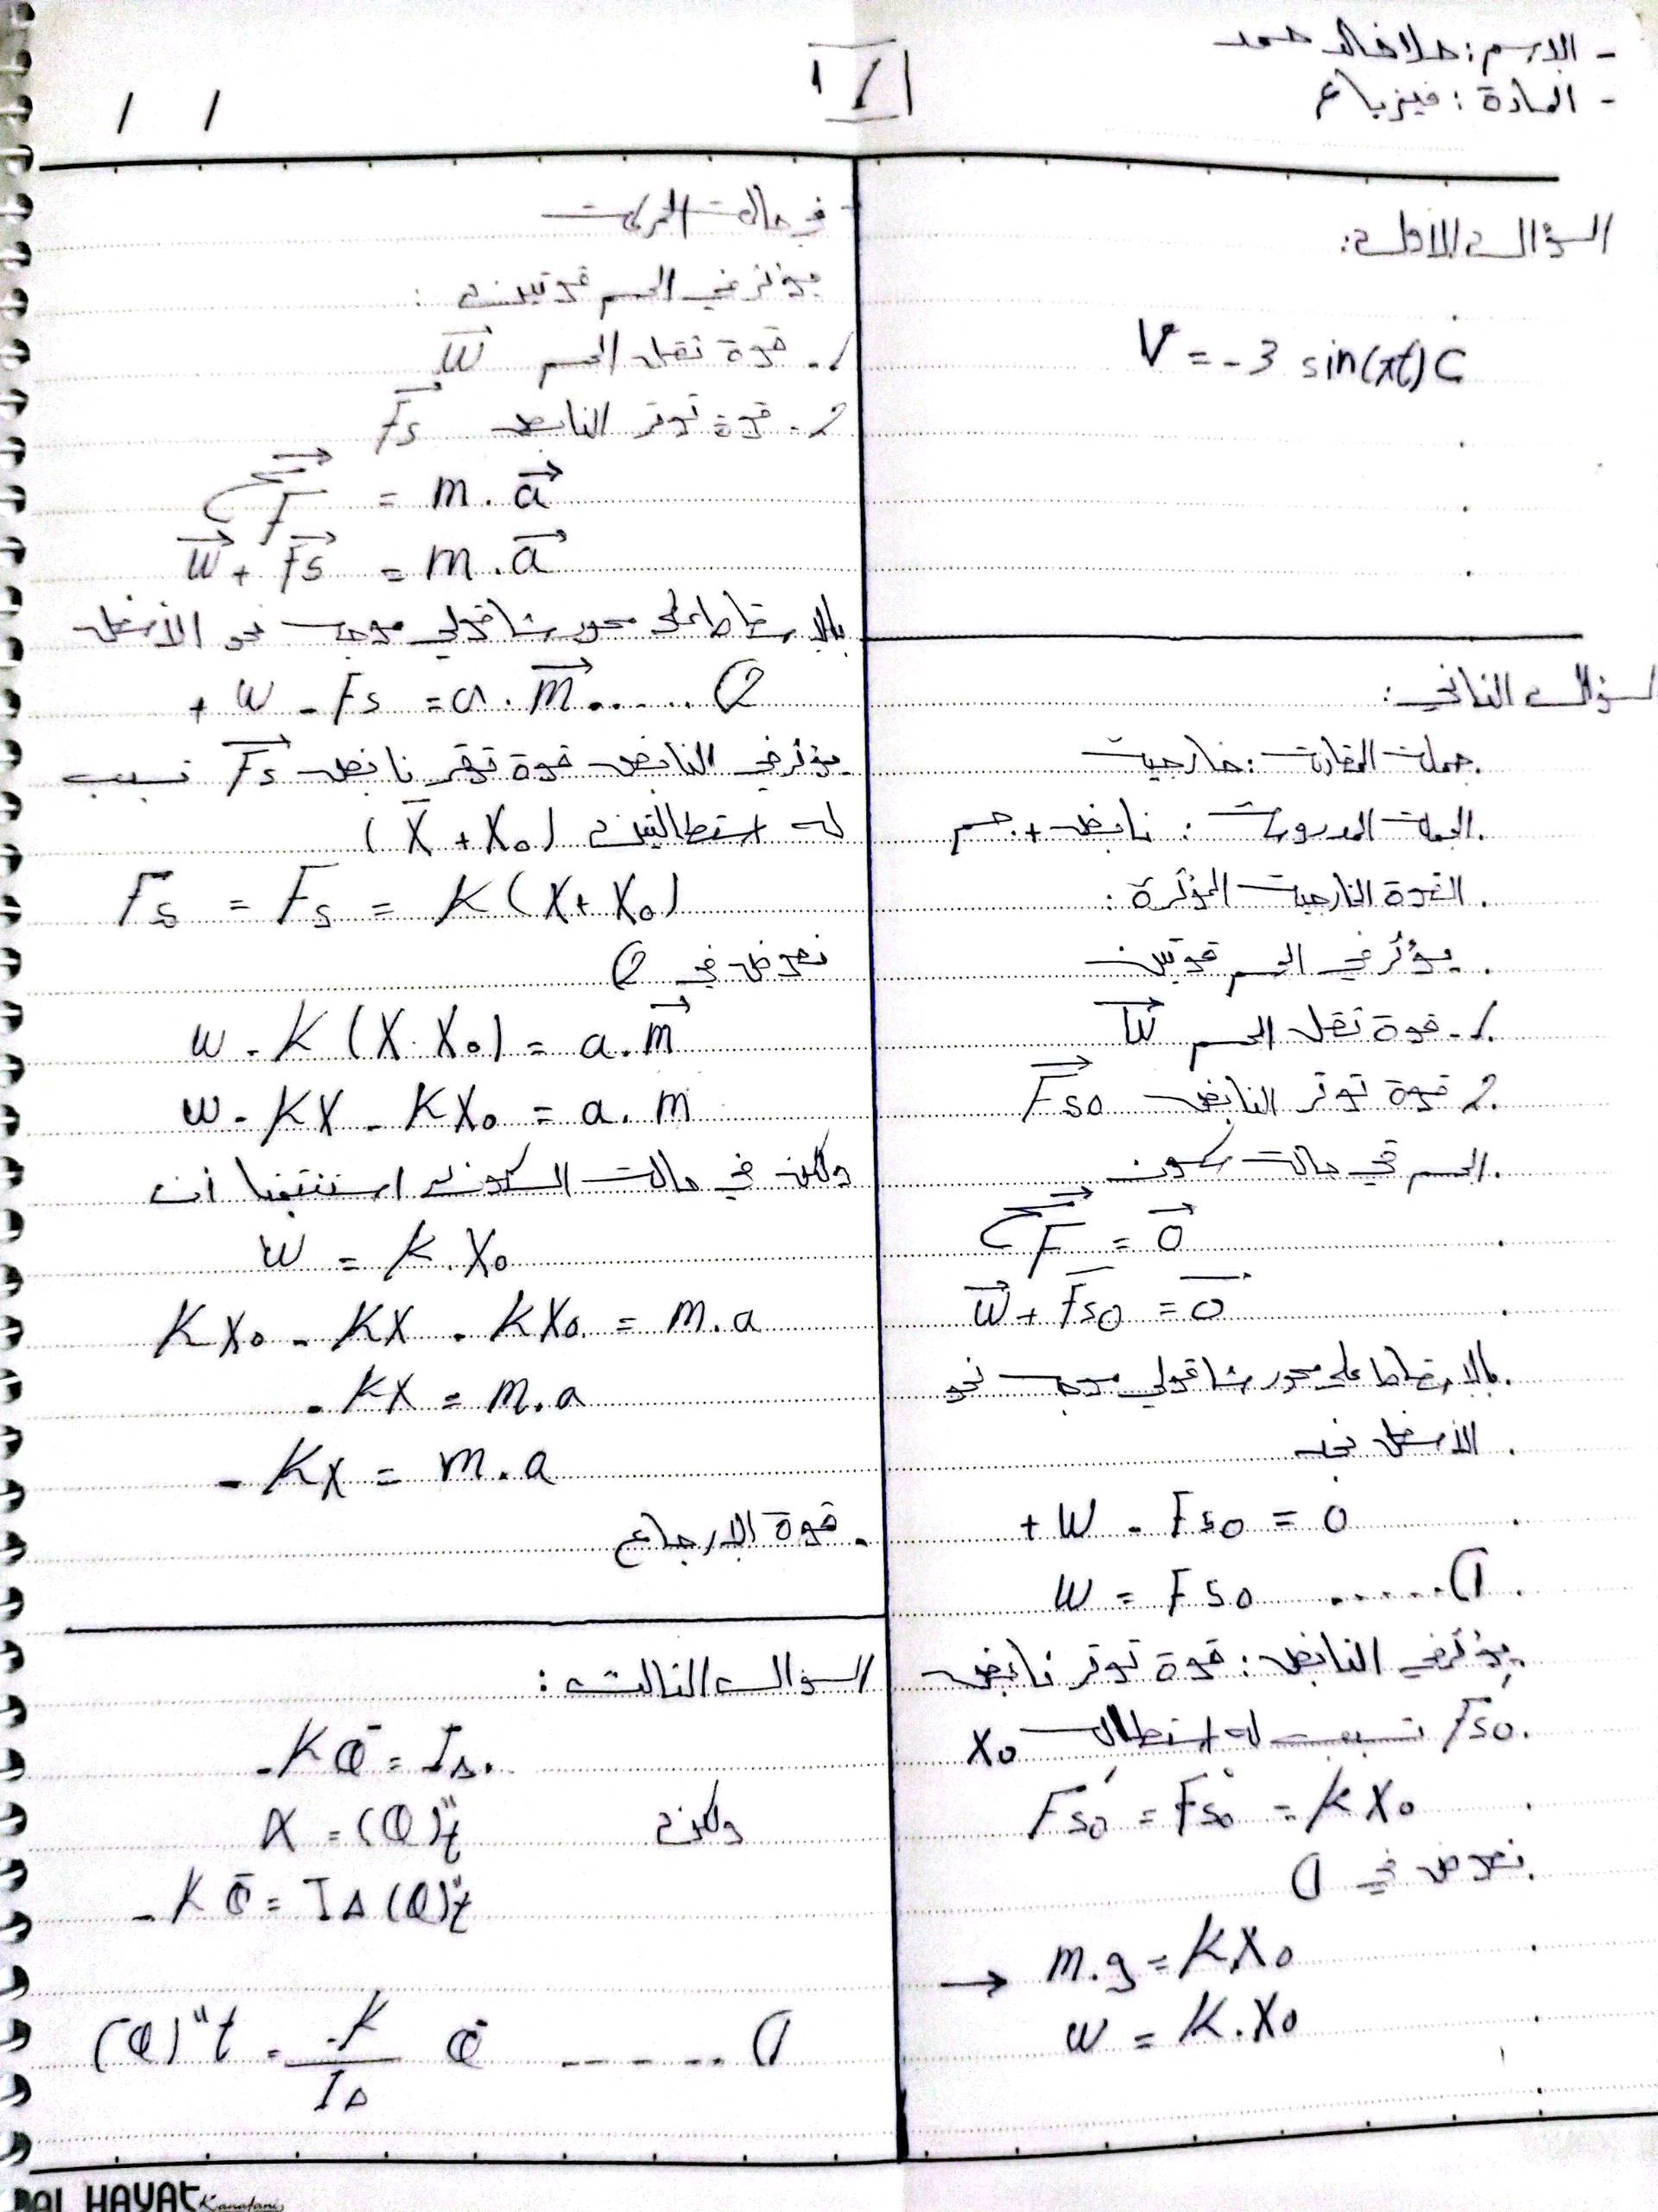 - الاسم : حلا خالد حمد
- المادة : فيزياء
السؤال الاول :
V = -3 sin(πt) C
السؤال الثاني :
جملة المقارنة : خارجية
الجملة المدروسة : نابض + جسم
القوة الخارجية المؤثرة :
يؤثر في الجسم قوتين
1- قوة ثقل الجسم W
2. قوة توتر النابض Fs0
الجسم في حالة سكون
ΣF = 0
W + Fs0 = 0
بالاسقاط على محور شاقولي موجب نحو
الأسفل نجد
+ W - Fs0 = 0
W = Fs0 ...... ①
يؤثر في النابض : قوة توتر نابض
Fs0' تسبب له استطالة X0
Fs0' = Fs0 = K X0
نعوض في ①
→ m.g = K X0
w = K . X0
- في حالة الحركة
يؤثر في الجسم قوتين :
1- قوة ثقل الجسم W
2- قوة توتر النابض Fs
ΣF = m . a
W + Fs = m . a
بالاسقاط على محور شاقولي موجب نحو الأسفل
+ W - Fs = a . m ...... ②
يؤثر في النابض قوة توتر نابض Fs تسبب
له استطالتين (X + X0)
Fs = Fs = K (X + X0)
نعوض في ②
w - K (X . X0) = a . m
w - KX - KX0 = a . m
ولكن في حالة السكون استنتجنا أن
W = K . X0
K X0 - KX - KX0 = m . a
- KX = m . a
- KX = m . a
قوة الإرجاع
السؤال الثالث :
- K θ = I∆ .
ولكن α = (θ)''t
- K θ = I∆ (θ)''t
(θ)''t = -K / I∆ θ ------ ①
AL HAYAT Kanatani